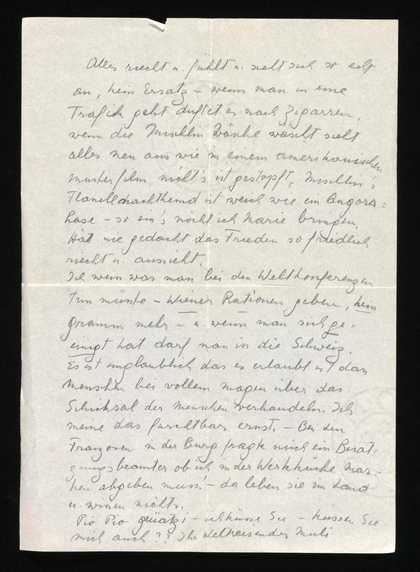 Alles riecht u. fühlt u. sieht sich so echt
an, kein Ersatz – wenn man in eine
Trafik geht duftet es nach Zigarren,
wenn die Misslm Wäsche wäscht sieht
alles neu aus wie in einem amerikanischen
Musterfilm, nichts ist gestopft,
Flanellnachthemd ist weich wie ein Angora-
hase – so ein's möcht ich Marie bringen.
Hät nie gedacht das Frieden so friedlich
riecht u. aussieht.
Ich weiss was man bei den Weltkonferenzen
tun müsste – Wiener Rationen geben, kein
Gramm mehr – u. wenn man sich ge-
einigt hat darf man in die Schweiz.
Es ist unglaublich das es erlaubt ist das
Menschen bei vollem Magen über das
Schicksal der Menschen verhandeln. Ich
meine das furchtbar ernst. – Bei den
Franzosen in der Burg fragte mich ein
beamter ob ich in der Werkküche Mar-
ken abgeben muss! – da leben sie im Land
u. wissen nichts.
Pio Pio – ich küsse Sie – küssen Sie
mich auch?? Ihr Weltreisender Muli